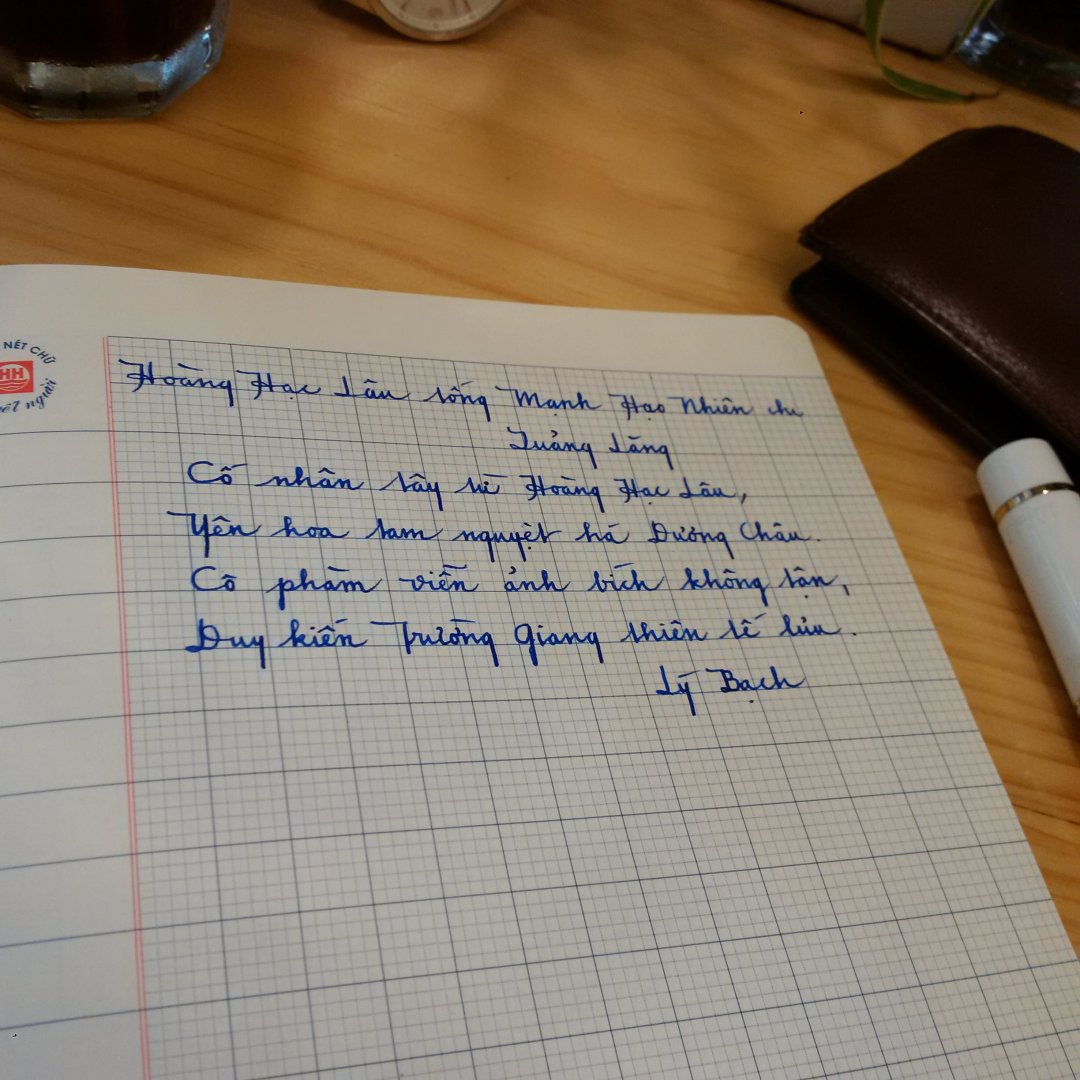 NÉT CHỮ
HH
nết người
Hoàng Hạc Lâu tống Mạnh Hạo Nhiên chi
Quảng Lăng
Cố nhân tây từ Hoàng Hạc Lâu,
Yên hoa tam nguyệt há Dương Châu.
Cô phàm viễn ảnh bích không tận,
Duy kiến Trường Giang thiên tế lưu.
Lý Bạch